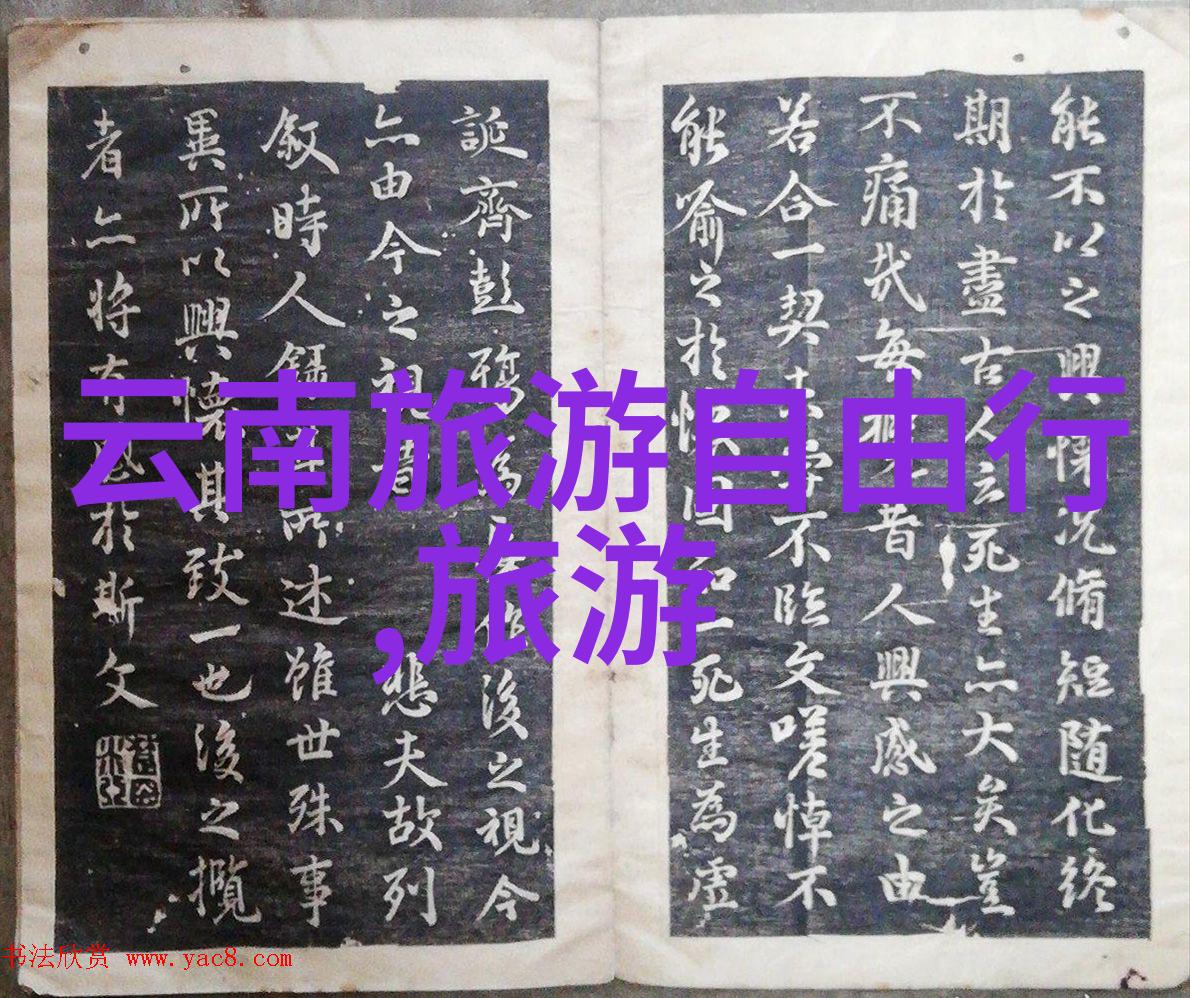 能不以之興懷況脩短随化終
期於盡古人云死生亦大矣豈
不痛哉每攬昔人興感之由
若合一契未嘗不臨文嗟悼不
能喻之於懷固知一死生為虛
誕齊彭殤為妄作後之視今
亦由今之視昔悲夫故列
敘時人錄其所述雖世殊事
異所以興懷其致一也後之攬
者亦將有感於斯文
云南旅游自由行
,旅游
书法欣赏 www.yac8.com